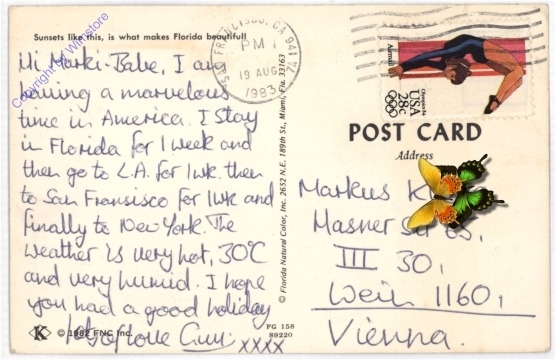 Sunsets like this, is what makes Florida beautiful!
Hi Marki-Babe, I am
having a marvelous
time in America. I stay
in Florida for 1 week and
then go to L.A. for 1wk. then
to San Fransisco for 1wk and
finally to New York. The
weather is very hot, 30°C
and very humid. I hope
you had a good holiday
xxxx
K © 1982 FNC Inc.
FG 158
89220
© Florida Natural Color, Inc. 2652 N.E. 189th St., Miami, Fla. 33163
SAN FRANCISCO, CA 941
PM
19 AUG
1983
Olympics 84
USA
28c
POST CARD
Address
Markus K
Masner
III 30,
Wein 1160,
Vienna.
Copyright by Winstore